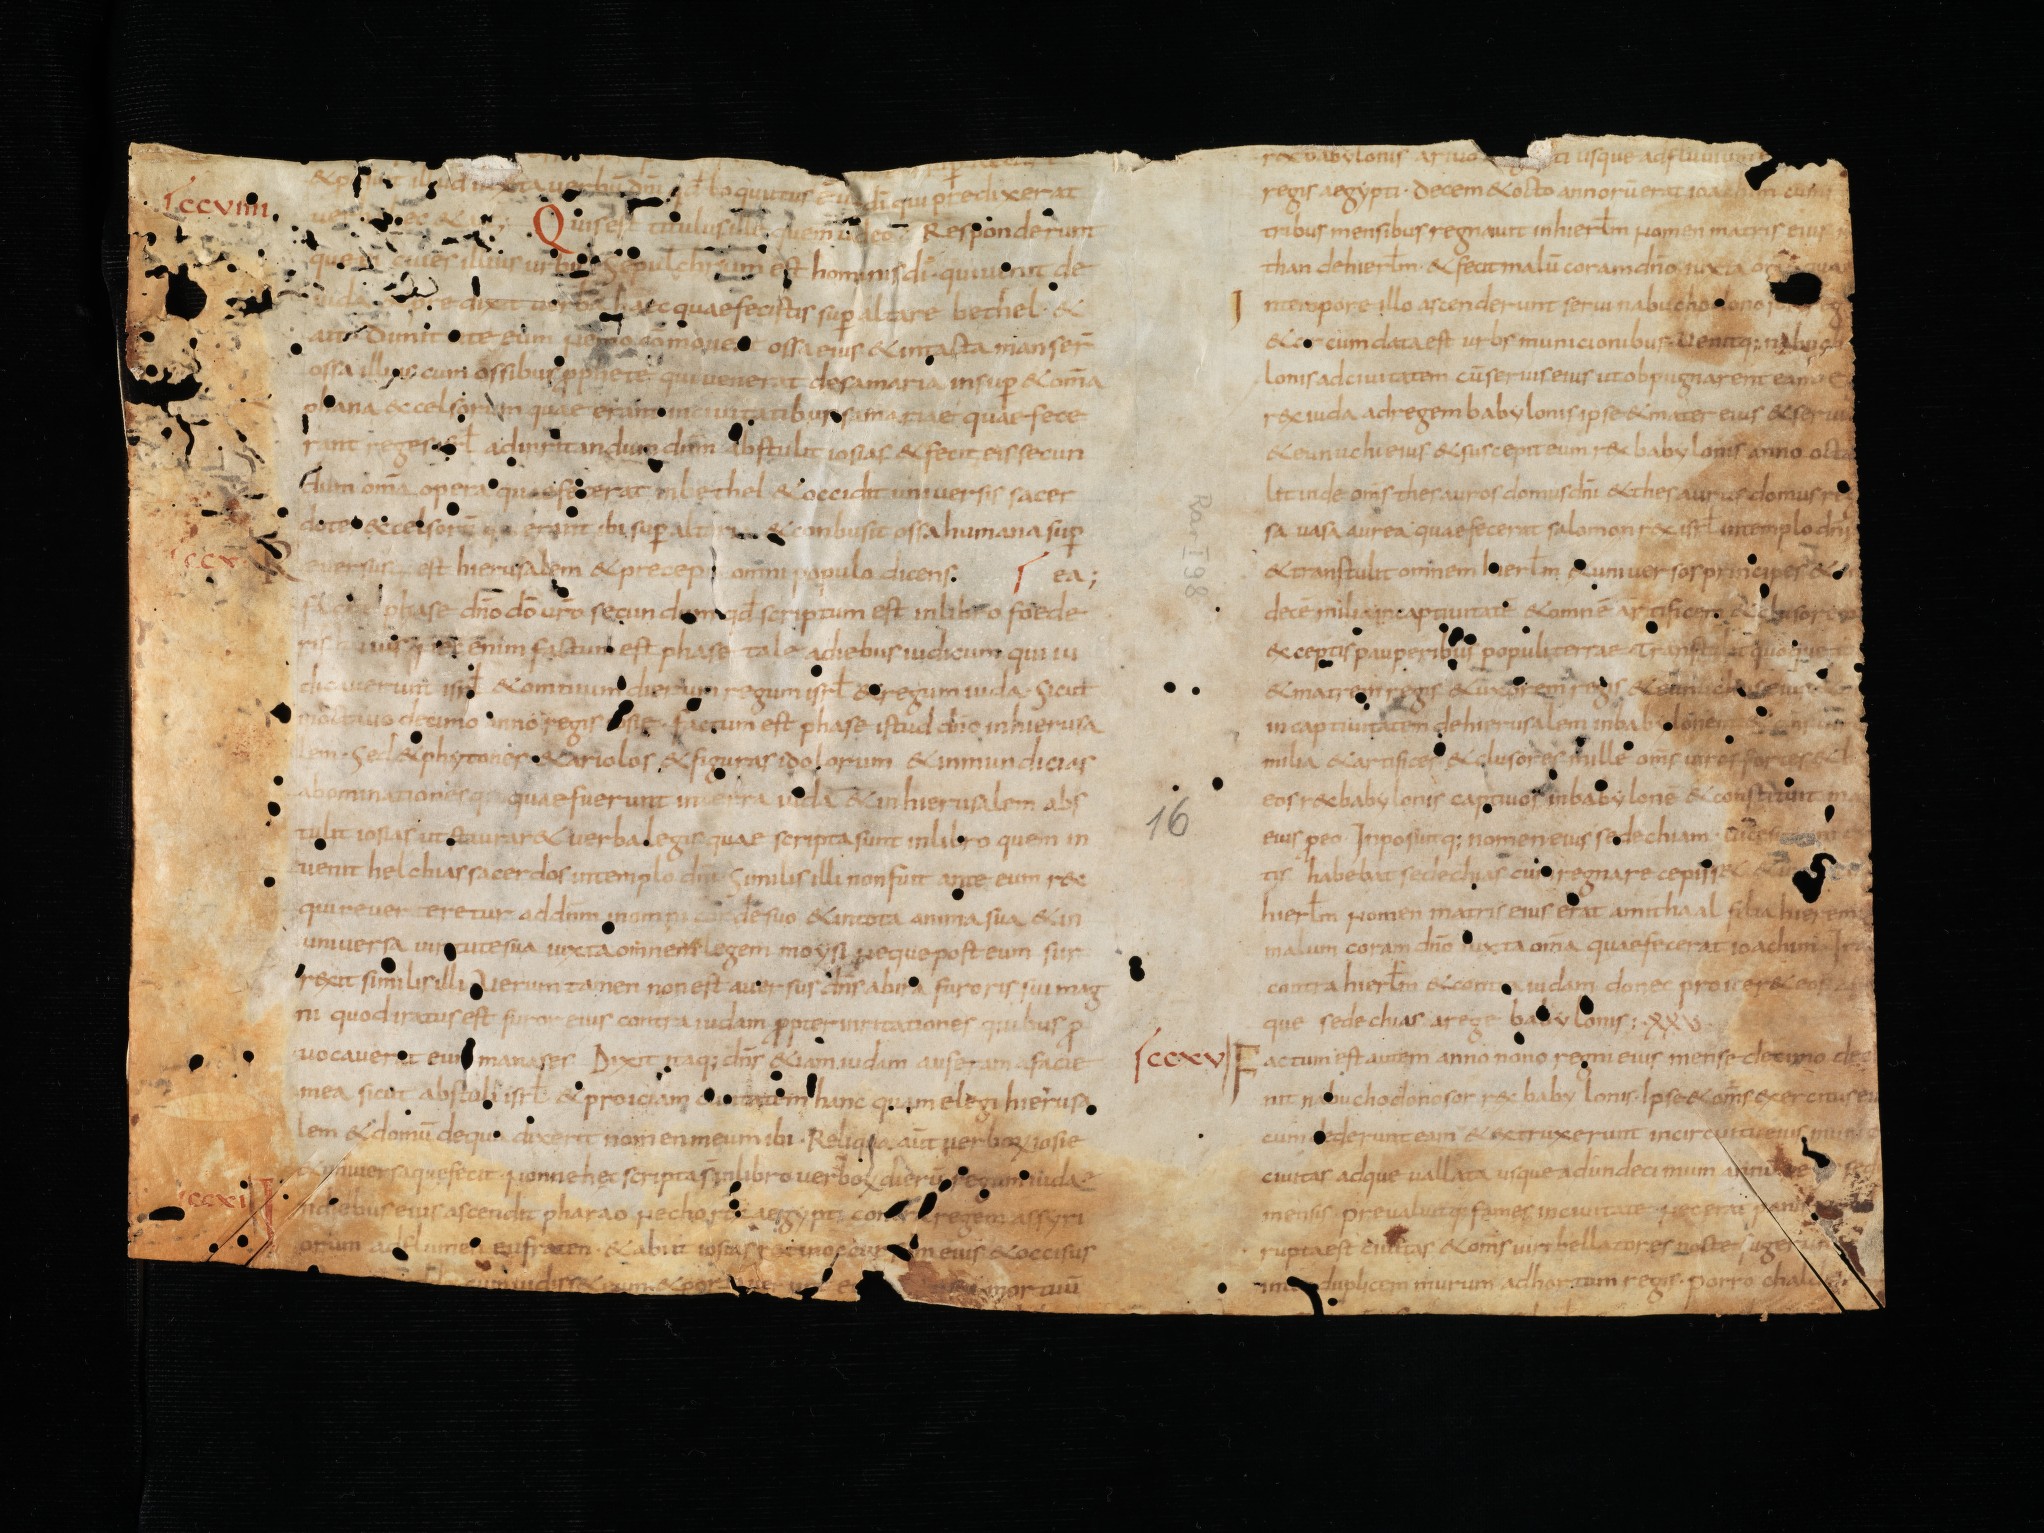 ccviiii
& polluit illud iuxta uerbū dn̄i qd̄ loquutus ē uir dī qui predixerat
uerba hec & ait; Quis est titulus ille quem uideo Responderunt
que ei ciues illius urbis Sepulchrum est hominis dī qui uenit de
iuda & predixit uerba haec quae fecistis sup altare bethel · &
ait · Dimittite eum nemo cōmoueat ossa eius & intacta manser̄
ossa illius cum ossibus pphete qui uenerat de samaria insup & om̄a
phana excelsorum quae erant in ciuitatibus samariae quae fece
rant reges isrl̄ ad inritandum dn̄m abstulit iosias & fecit eis secun
dum om̄a opera quae fecerat in bethel & occidit uniuersis sacer
dotes excelsorū qui erant ibi sup altaria & conbusit ossa humana sup
ccx R euersus est hierusalem & precepit omni populo dicens · ea;
facite phase dn̄o dō uro secundum qd̄ scriptum est in libro foede
ris huius nec enim factum est phase tale a diebus iudicum qui iu
dicauerunt isrl̄ & omnium dierum regum isrl̄ & regum iuda · Sicut
in octauo decimo anno regis iosie · factum est phase istud dn̄o in hierusa
lem · Sed & phytones & ariolos & figuras idolorum & inmundicias
abominationesq; quae fuerunt in terra iuda & in hierusalem abs
tulit iosias ut staurar& uerba legis quae scripta sunt in libro quem in
uenit helchias sacerdos in templo dn̄i · Similis illi non fuit ante eum rex
qui reuerteretur ad dn̄m in omni corde suo & in tota anima sua & in
uniuersa uirtute sua iuxta omnem legem moysi neque post eum sur
rexit similis illi Verum tamen non est auersus dn̄s ab ira furoris sui mag
ni quod iratus est furor eius contra iudam ppter inritationes quibus p
uocauerat eum manases Dixit itaq; dn̄s & iam iudam auferam a facie
mea sicut abstuli isrl̄ & proiciam ciuitatem hanc quam elegi hierusa
lem & domū de qua dixerit nomen meum ibi · Reliqua aūt uerborū iosie
& uniuersa que fecit · nonne hec scripta s̄ in libro uerborū dierū regum iudae
ccxi I n diebus eius ascendit pharao nechor rex aegypti contra regem assyri
orum ad flumen eufraten · & abiit iosias rex in occursum eius & occisus
cum uidiss& eum & portauer mortuū
rex babylonis a riuo ti usque ad fluuium
regis aegypti · Decem & octo annorū erat ioachim cum
tribus mensibus regnauit in hierl̄m nomen matris eius
than de hierl̄m · & fecit malū coram dn̄o iuxta om̄a qua
I n tempore illo ascenderunt serui nabuchodonosor reg
& circumdata est urbs municionibus Venitq; nabuch
lonis ad ciuitatem cū seruis eius ut obpugnarent eam E
rex iuda ad regem babylonis ipse & mater eius & serui
& eunuchi eius & suscepit eum rex babylonis anno octa
lit inde om̄s thesauros domus dn̄i & thesauros domus re
sa uasa aurea quae fecerat salomon rex isrl̄ in templo dn̄i
& transtulit omnem hierl̄m & uniuersos principes &
decē milia in captiuitatē & omnē artificem & clusorē
exceptis pauperibus populi terrae Transtulit quoque
& matrem regis & uxorem regis & eunuchos eius
in captiuitatem de hierusalem in babylonem
milia & artifices & clusores mille om̄s uiros fortes &
eos rex babylonis captiuos in babylonē & constituit ma
eius p eo Inposuitq; nomen eius sedechiam · uicesimum
tis habebat sedechias cum regnare cepiss&
hierl̄m nomen matris eius erat amithaal filia hierem
malum coram dn̄o iuxta om̄a quae fecerat ioachim · Ira
contra hierl̄m & contra iudam donec proicer& eos
que sedechias a rege babylonis; · xxv ·
ccxv F actum est autem anno nono regni eius mense decimo dec
nit nabuchodonosor rex babylonis · Ipse & om̄s exercitus eiu
cumdederunt eam & extruxerunt in circuitu eius mun
ciuitas adque uallata usque ad undecimum annū regis sed
mensis · preualuitq; fames in ciuitate nec erat panis
rupta est ciuitas & om̄s uiri bellatores nocte fugerun
inter duplicem murum ad hortum regis · porro chald
Rar I 98
16